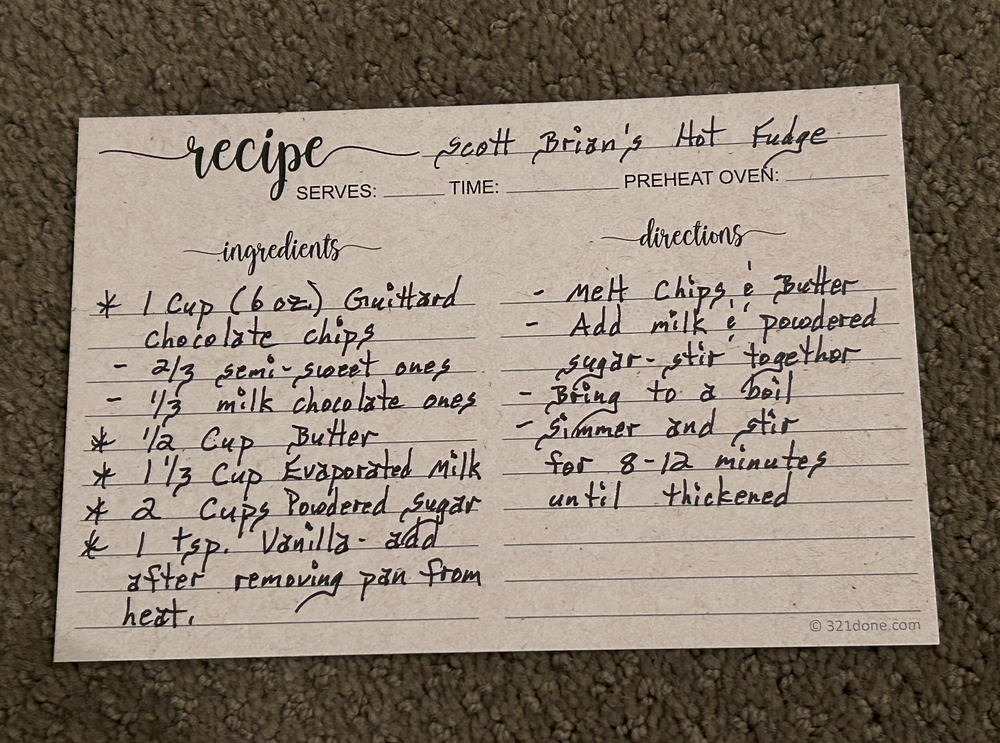 recipe Scott Brian's Hot Fudge
SERVES: TIME: PREHEAT OVEN:
ingredients
* 1 Cup (6 oz.) Guittard
chocolate chips
- 2/3 semi-sweet ones
- 1/3 milk chocolate ones
* 1/2 Cup Butter
* 1 1/3 Cup Evaporated Milk
* 2 Cups Powdered sugar
* 1 tsp. Vanilla - add
after removing pan from
heat.
directions
- Melt Chips & Butter
- Add milk & powdered
sugar - stir together
- Bring to a boil
- Simmer and stir
for 8-12 minutes
until thickened
© 321done.com